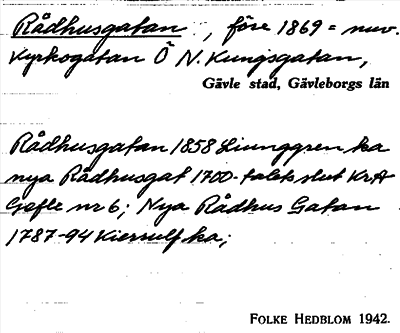 Rådhusgatan, före 1869 = nuv.
Kyrkogatan Ö N. Kungsgatan,
Gävle stad, Gävleborgs län
Rådhusgatan 1858 Ljunggren ka
nya Rådhusgat 1700-talets slut KrA
Gefle nr 6; Nya Rådhus Gatan
1787-94 Kiersulf ka;
FOLKE HEDBLOM 1942.